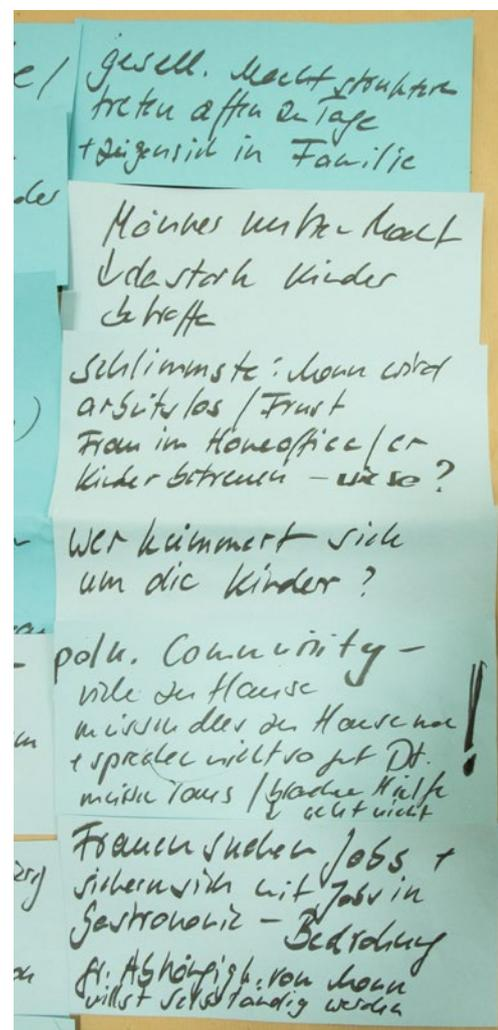 gesell. Machtstrukturen
treten offen zu Tage
+ zeigen sich in Familie
Männer Macht
da stark Kinder
betroffen
Schlimmste: Mann wird
arbeitslos / Frust
Frau im Homeoffice / er
Kinder betreuen – wieso?
Wer kümmert sich
um die Kinder?
poln. Community –
viele zu Hause
müssen alles zu Hause
+ sprechen nicht so gut Dt. !
müssen raus / brauchen Hilfe
geht nicht
Frauen suchen Jobs +
sichern sich mit Jobs in
Gastronomie – Bedrohung
gr. Abhängigk. von Mann
willst selbständig werden